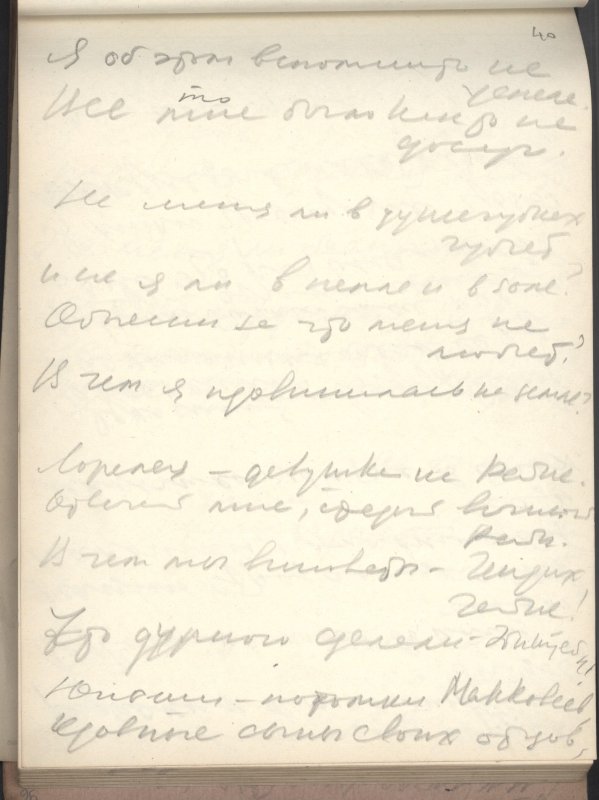 40
Я об этом вспомнить не
успела.
Все мне то было как-то не
досуг.
Не меня ли в душегубках
губят
и не я ли в пепле и в золе?
Объясни за что меня не
любят?
В чем я провинилась на земле?
Лорелея – девушка на Рейне.
Ответь мне,
Рейн.
В чем мы виноваты – Генрих
Гейне!
Что дурного сделали – Эйнштейн
Юноши – потомки Маккавеев,
кровные сыны своих отцов,